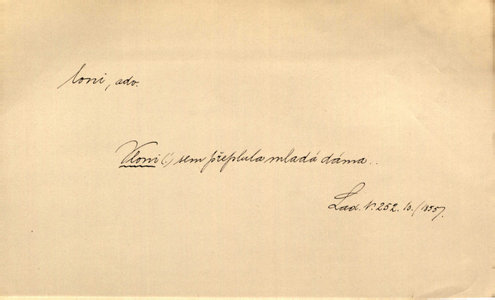 loni, adv.
Vloni (!) sem přeplula mladá dáma..
Lad. V. 252. b. (1855).